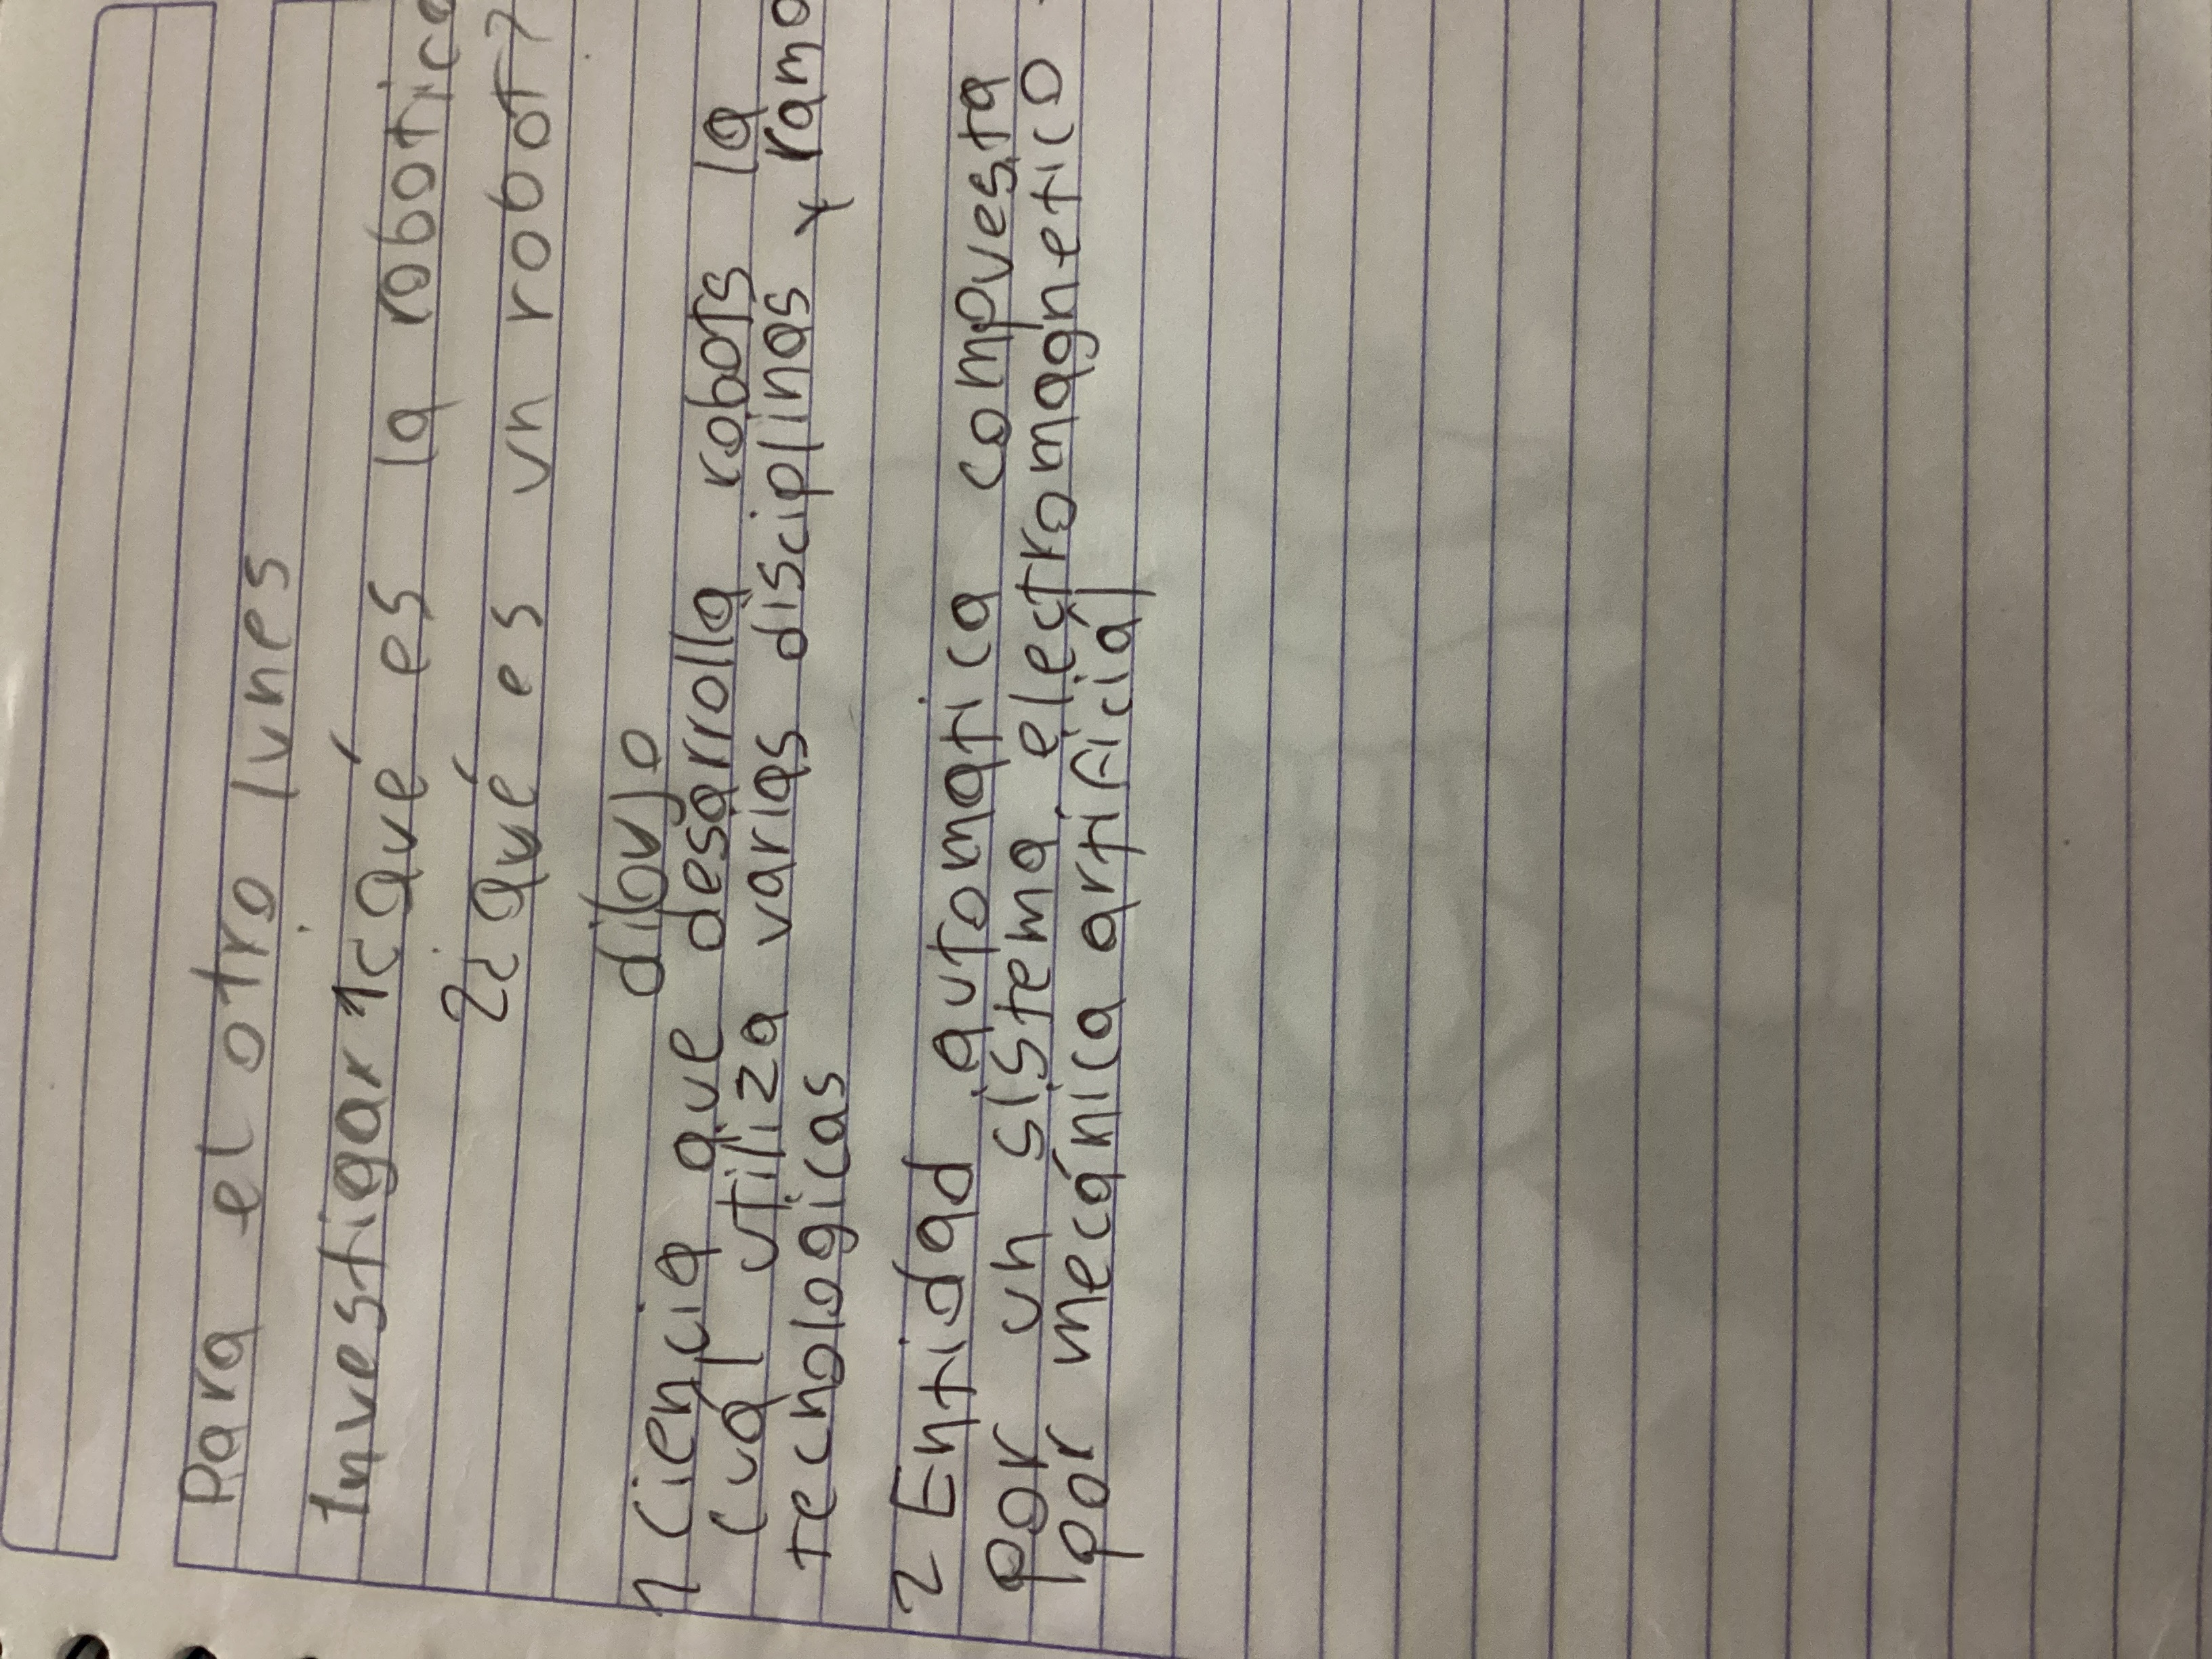 Para el otro lunes
Investigar 1¿Qué es la robotica
2¿Qué es un robot?
dibujo
1 Ciencia que desarrolla robots la
cuál utiliza varias disciplinas y ramo
tecnologicas
2 Entidad automatica compuesta
por un sistema electromagnetico
por mecánica artificial